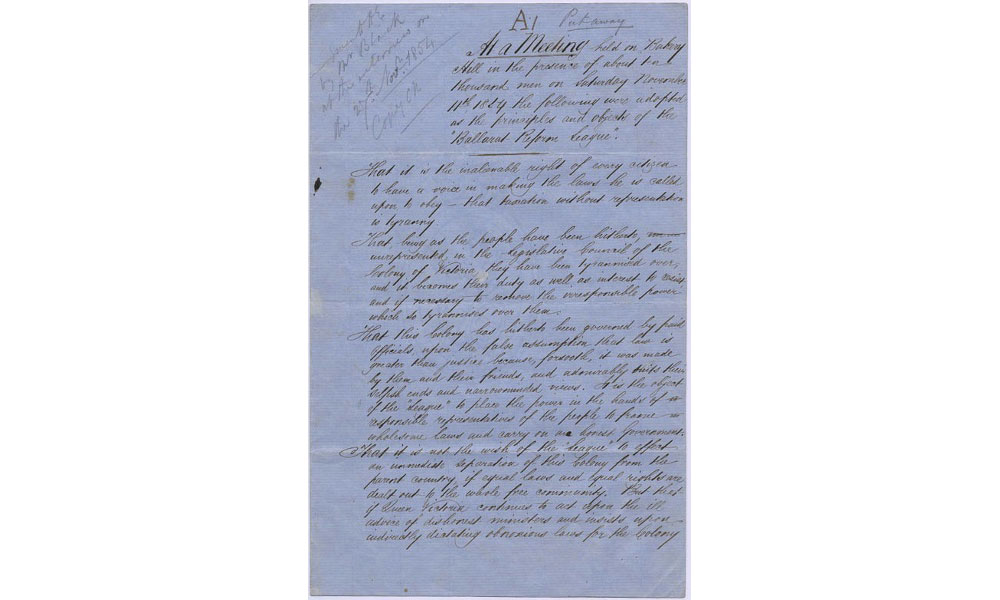 A1
Put away
by Mr Black
at the interview on
the 27th Novr. 1854
Copy Ck
At a Meeting held on Bakery
Hill in the presence of about ten
thousand men on Saturday November
11th 1854 the following were adopted
as the principles and objects of the
"Ballarat Reform League".
That it is the inalienable right of every citizen
to have a voice in making the laws he is called
upon to obey – that taxation without representation
is tyranny
That, being as the people have been hitherto,
unrepresented in the Legislative Council of the
Colony of Victoria, they have been tyrannised over,
and it becomes their duty as well as interest to resist
and if necessary to remove the irresponsible power
which so tyrannises over them.
That this Colony has hitherto been governed by paid
Officials, upon the false assumption that law is
greater than justice because, forsooth, it was made
by them and their friends, and admirably suits their
selfish ends and narrowminded views. It is the object
of the "League" to place the power in the hands of
responsible representatives of the people to frame
wholesome laws and carry on an honest Government.
That it is not the wish of the "League" to effect
an immediate separation of this Colony from the
parent country, if equal laws and equal rights are
dealt out to the whole free community. But that
if Queen Victoria continues to act upon the ill
advice of dishonest ministers and insists upon
indirectly dictating obnoxious laws for the Colony